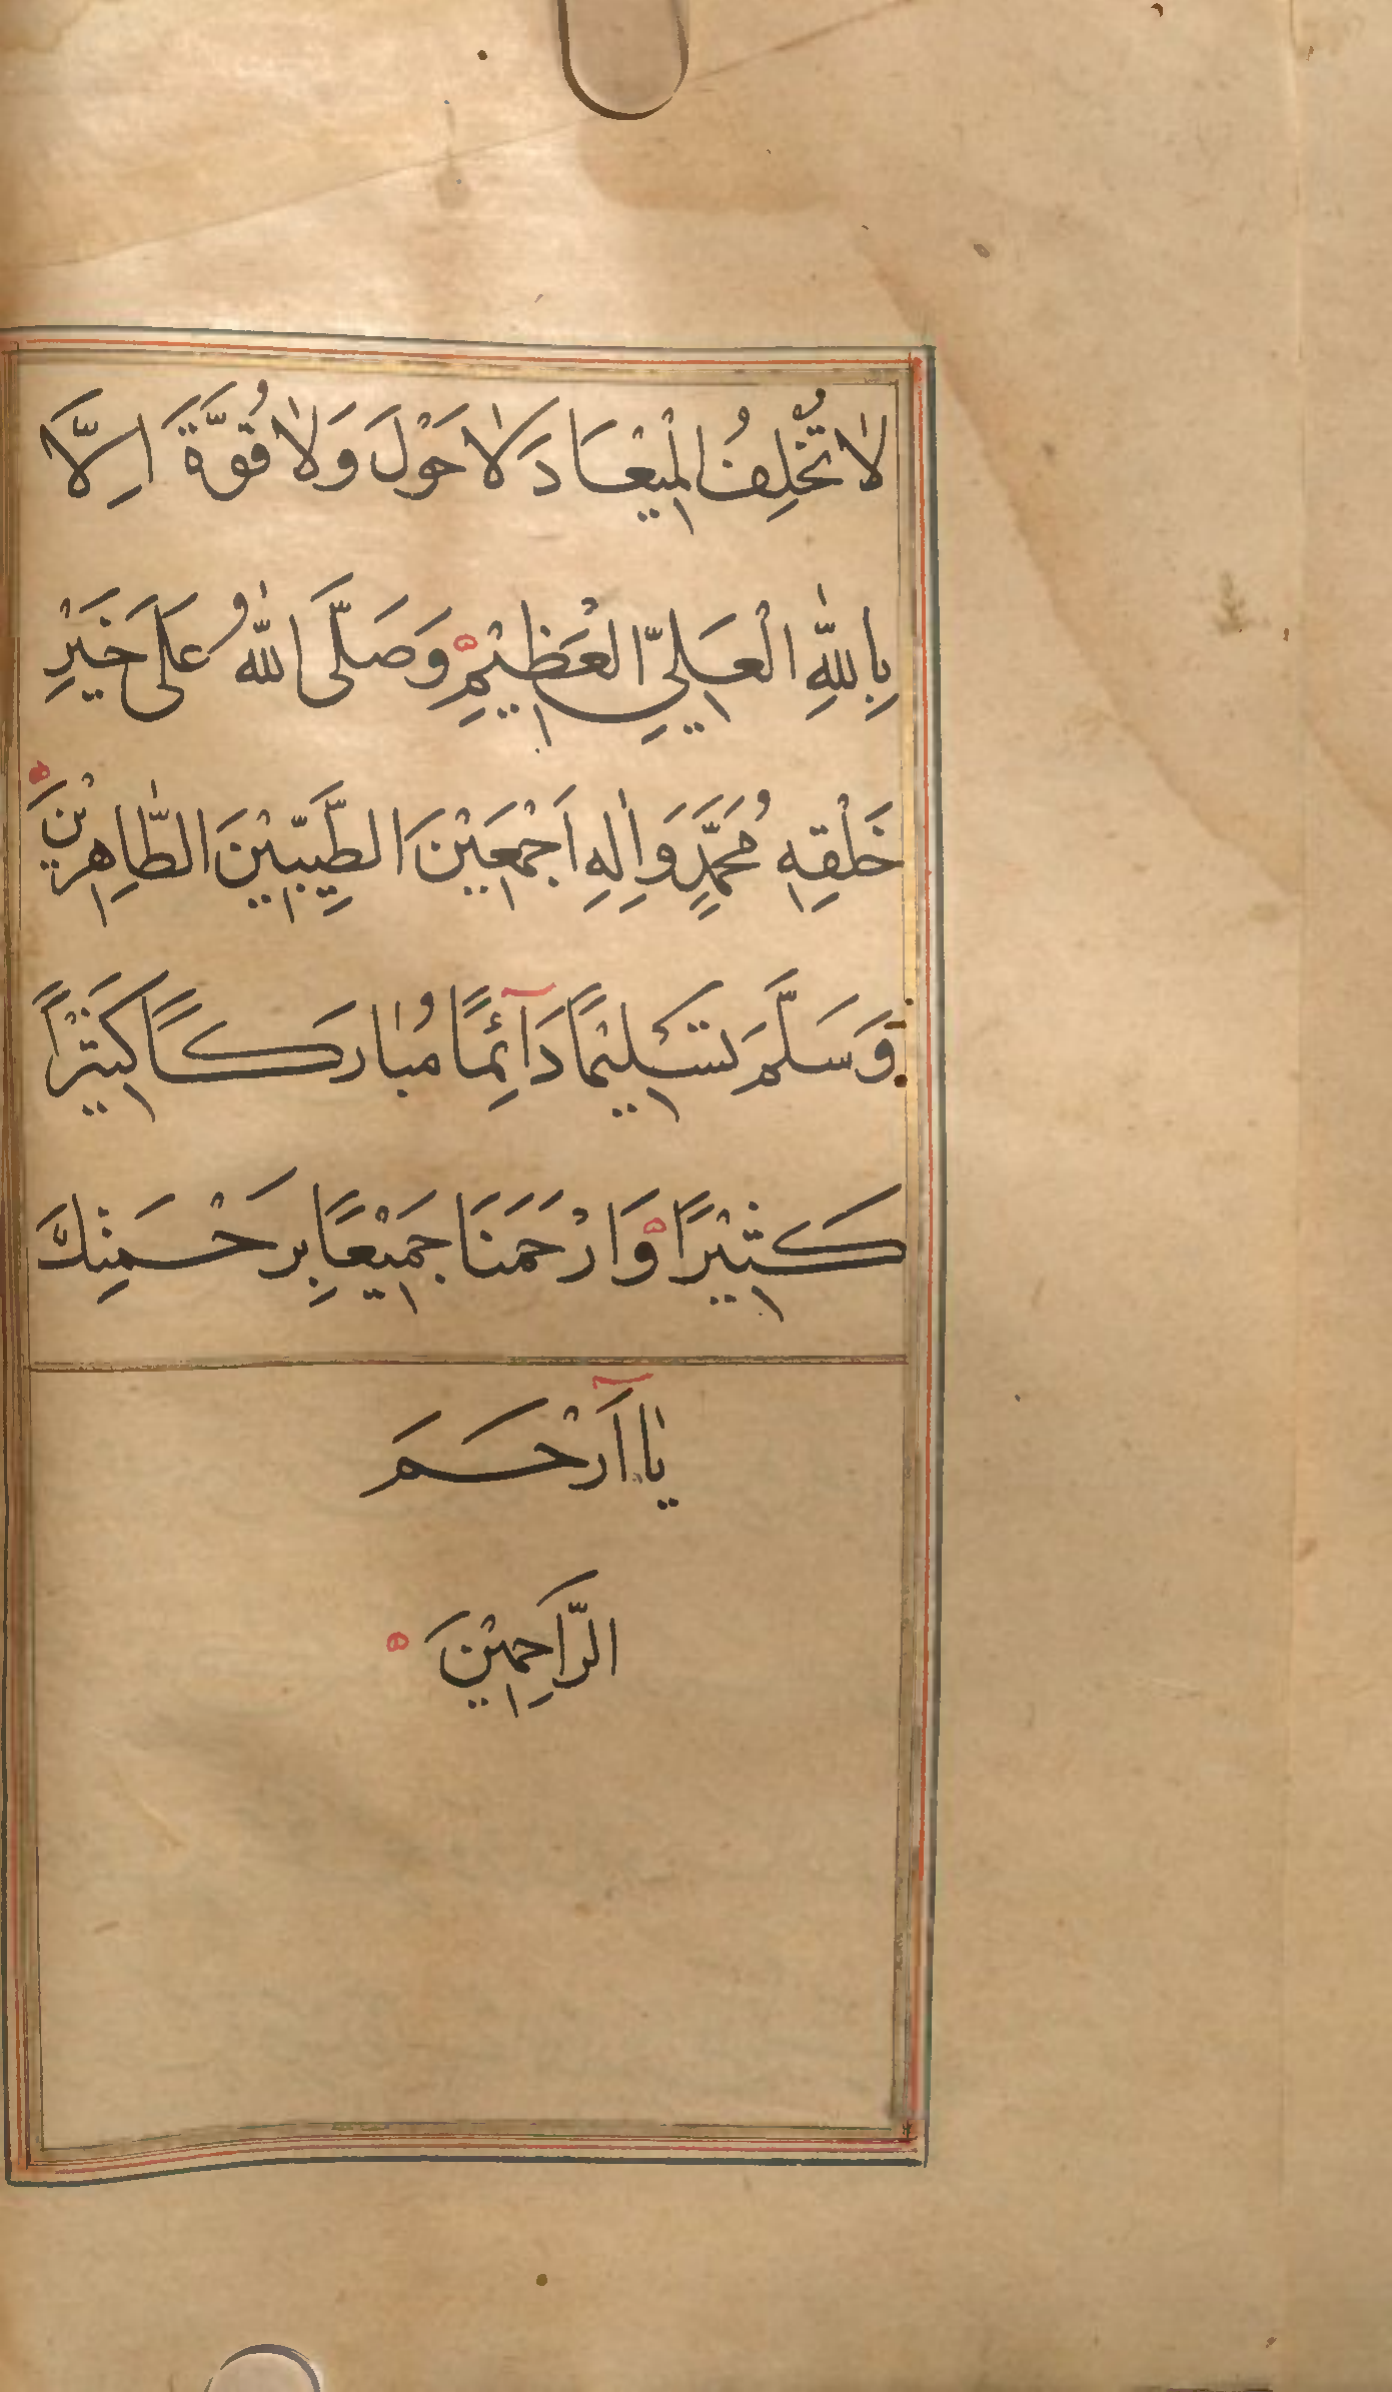 لَا تُخْلِفُ الْمِيْعَادَ لَا حَوْلَ وَلَا قُوَّةَ اِلَّا
بِاللّٰهِ الْعَلِيِّ الْعَظِيْمِ وَصَلَّى اللّٰهُ عَلَى خَيْرِ
خَلْقِهِ مُحَمَّدٍ وَاٰلِهِ اَجْمَعِيْنَ الطَّيِّبِيْنَ الطَّاهِرِيْنَ
وَسَلَّمَ تَسْلِيْمًا دَآئِمًا مُبَارَكًا كَثِيْرًا
كَثِيْرًا وَارْحَمْنَا جَمِيْعًا بِرَحْمَتِكَ
يَا اَرْحَمَ
الرَّاحِمِيْنَ